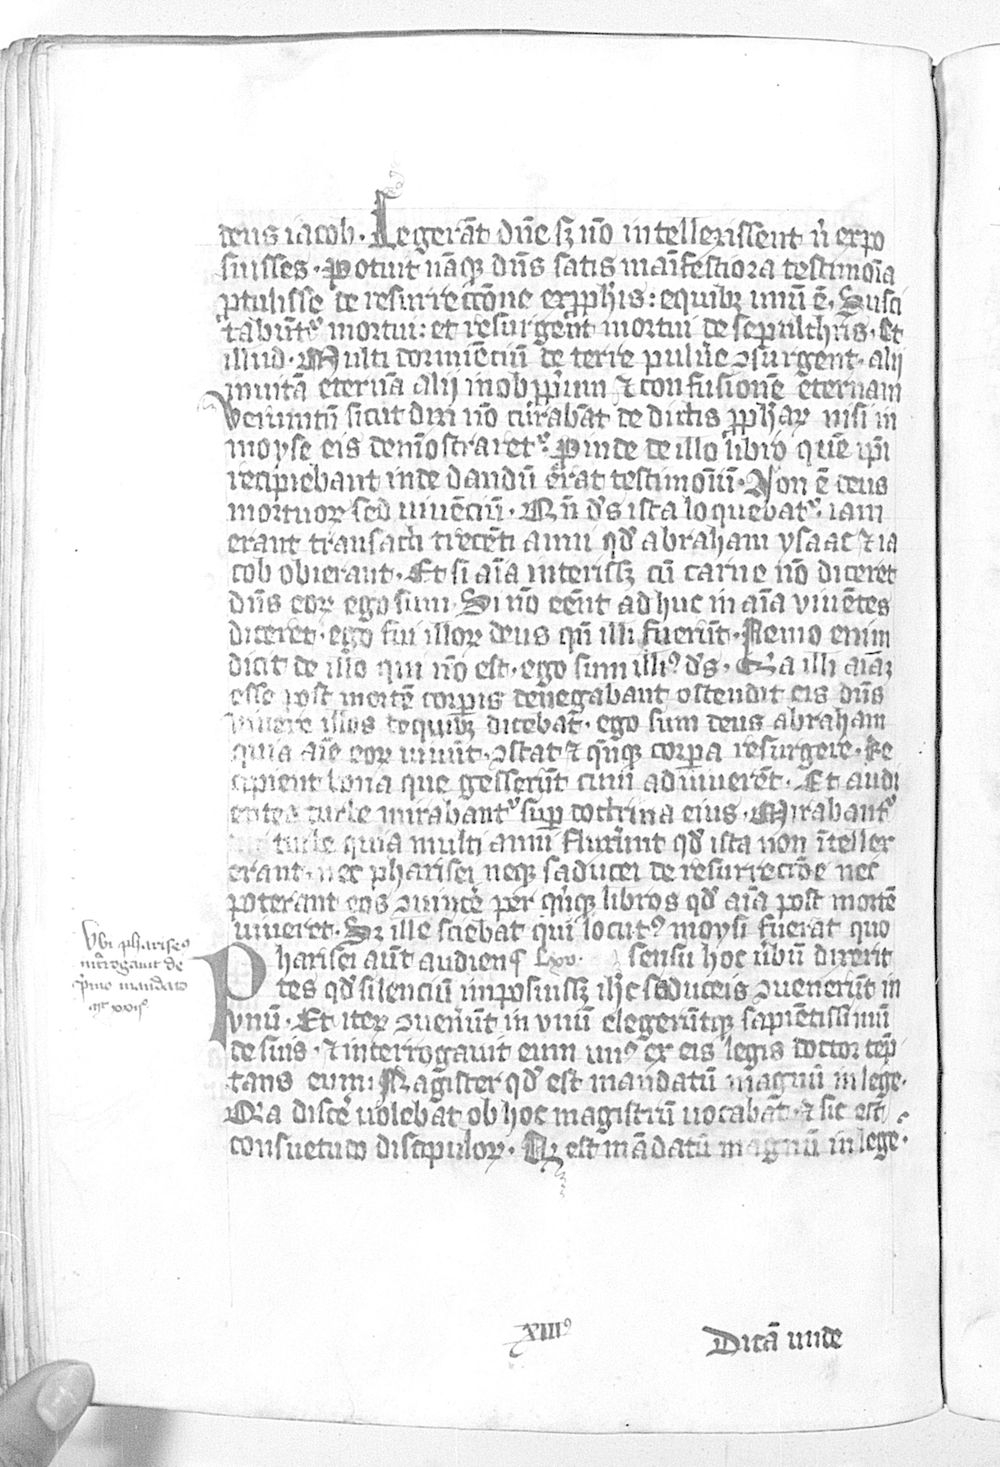 deus iacob. Legerãt dñe sʒ nõ intellexissent ñ expo
suisses. Potuit nãqꝫ dñs satis mãifestiora testimoĩa
ꝓtulisse de resurrecc̃one ex ꝓph̃is: e quibꝫ unũ ẽ. Susci
tabũt᷑ mortui: et resurgẽnt mortui de sepulchris. Et
illud. Multi dormiẽciũ de terre puluẽ ꝯsurgent. alij
in uitã eternã alij in obꝓbrium ⁊ confusionẽ eternam
Verumtñ sicut dixi nõ curabãt de dictis ꝓph̃aꝝ nisi in
moyse eis demõstraret᷑. Proinde de illo libro quẽ ip̃i
recipiebant inde dandũ erat testimoĩũ. Non ẽ deus
mortuoꝝ sed uiuẽciũ. Qñ d̃s ista loquebat᷑. iam
erant transacti trecẽti anni qđ abraham ysaac ⁊ ia
cob obierant. Et si aĩa interissꝫ cũ carne nõ diceret
dñs eoꝝ ego sum. Si nõ eẽnt ad huc in aĩa viuẽtes
diceret. ego fui illoꝝ deus qñ illi fuerũt. Nemo enim
dicit de illo qui nõ est. ego sum illiꝰ d̃s. Q̃a illi aĩaꝝ
esse post mortẽ corꝑis denegabant ostendit eis dñs
uiuere illos de quibꝫ dicebat. ego sum deus abraham
quia aĩe eoꝝ uiuũt. ꝯstat ⁊ qñqꝫ corꝑa resurgere. Re
cipient bona que gesserũt cum aduiuerẽt. Et audi
entes turbe mirabant᷑ suꝑ doctrina eius. Mirabant᷑
turbe quia multi anni fluxerũt qđ ista non ĩtellex
erant. nec pharisei neqꝫ saducei de resurreccĩoe nec
poterant eos ꝯuincẽ per qĩqꝫ libros qđ aĩa post mortẽ
uiueret. Sꝫ ille sciebat qui locutꝰ moysi fuerat quo
sensu hoc ũbũ dixerit
Pharisei aũt audien¶ lxv.
tes qđ silenciũ imposuissꝫ ih̃c saduceis ꝯuenerũt in
vnũ. Et iteꝝ ꝯuenũt in vnũ elegerũtqꝫ sapiẽtissimũ
de suis. ⁊ interrogauit eum unꝰ ex eis legis doctor tẽp
tans eum: Magister qđ est mandatũ magnũ in lege.
Q̃a discẽ uolebat ob hoc magistrũ uocabat. ⁊ sic est
consuetudo discipuloꝝ. Qꝫ est mãdatũ magnũ in lege.
Vbi phariseꝰ
int̃rogauit de
p̃mo mandato
XIIIꝰ
Dicã unde